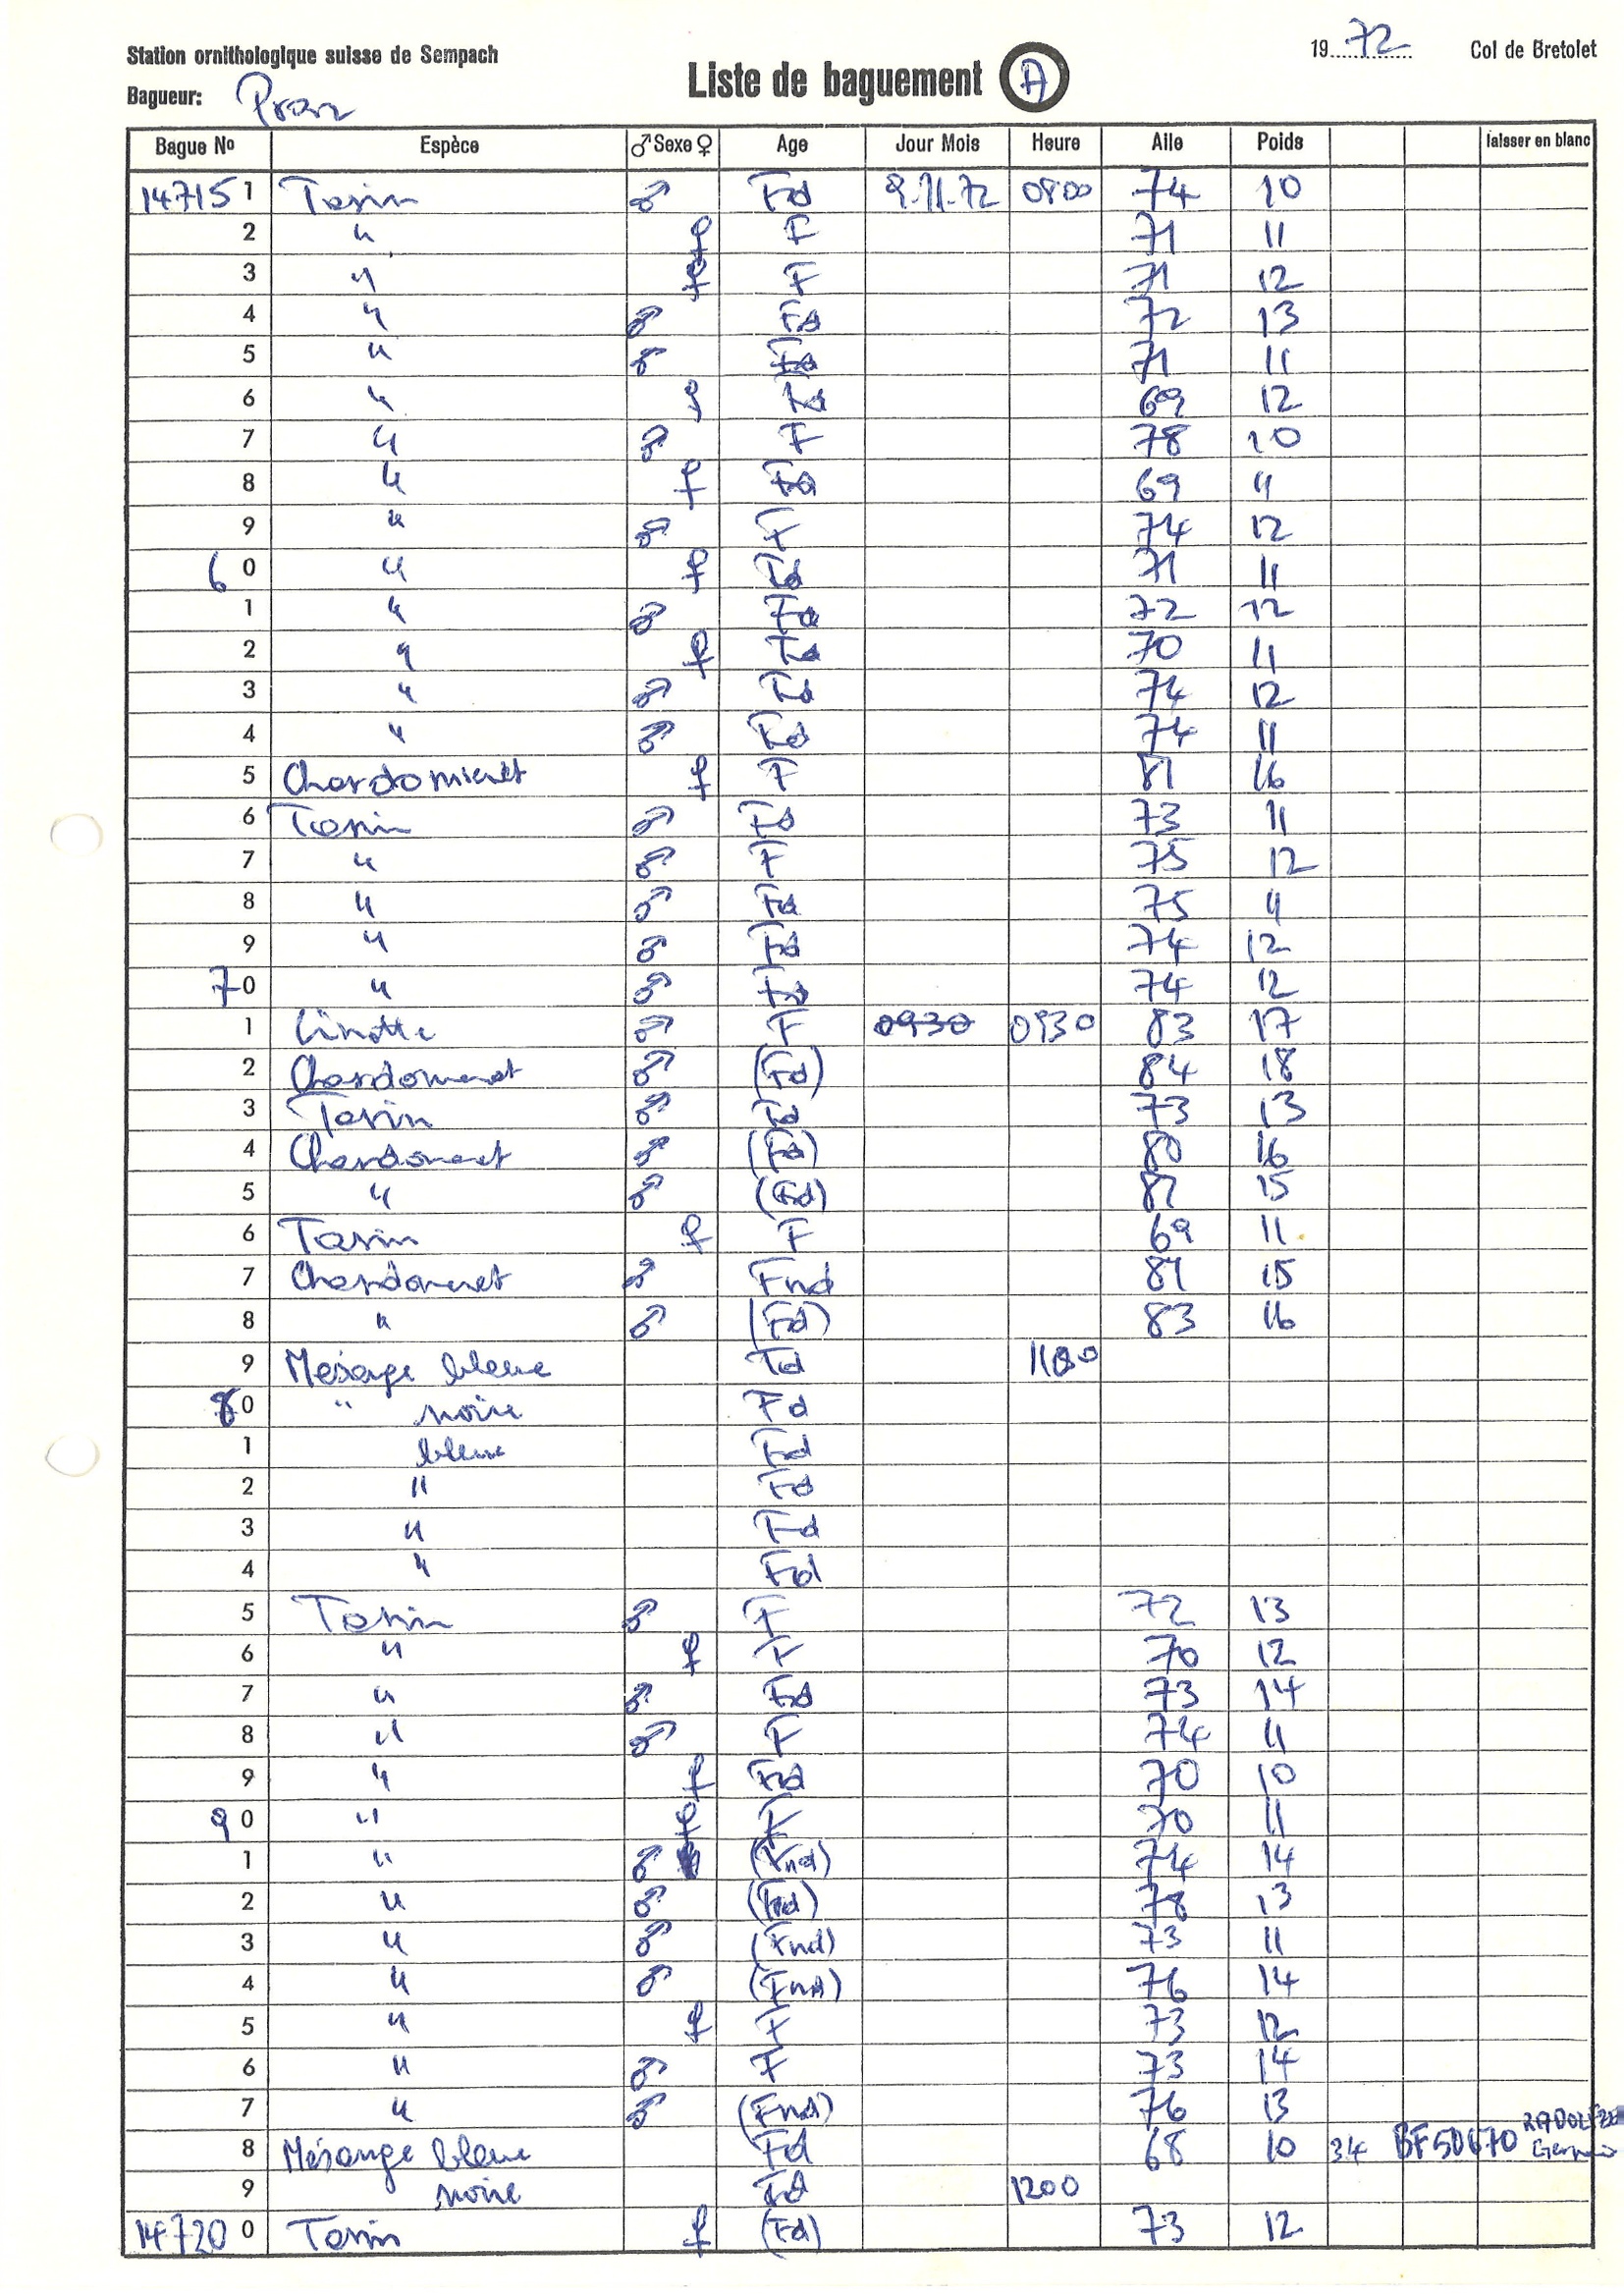 Station ornithologique suisse de Sempach
Bagueur:
Liste de baguement A
1972 Col de Bretolet
Bague No Espèce ♂ Sexe ♀ Age Jour Mois Heure Aile Poids laisser en blanc
147151 Tarin ♂ Fd 9.11.72 0800 74 10
2 " ♀ F 71 11
3 " ♀ F 71 12
4 " ♂ Fd 72 13
5 " ♂ Fd 71 11
6 " ♀ Fd 69 12
7 " ♂ F 78 10
8 " ♀ Fd 69 11
9 " ♂ F 74 12
60 " ♀ Fd 71 11
1 " ♂ Fd 72 12
2 " ♀ Fd 70 11
3 " ♂ Fd 74 12
4 " ♂ Fd 74 11
5 Chardonneret ♀ F 81 16
6 Tarin ♂ Fd 73 11
7 " ♂ F 75 12
8 " ♂ Fd 75 11
9 " ♂ Fd 74 12
70 " ♂ Fd 74 12
1 Linotte ♂ F 0930 0930 83 17
2 Chardonneret ♂ (Fd) 84 18
3 Tarin ♂ Fd 73 13
4 Chardonneret ♂ (Fd) 80 16
5 " ♂ (Fd) 15
6 Tarin ♀ F 69 11
7 Chardonneret ♂ Fnd 81 15
8 " ♂ (Fd) 83 16
9 Mésange bleue Fd 1100
80 " noire Fd
1 bleue Fd
2 " Fd
3 " Fd
4 " Fd
5 Tarin ♂ F 72 13
6 " ♀ F 70 12
7 " ♂ Fd 73 14
8 " ♂ F 74 11
9 " ♀ Fd 70 10
90 " ♀ F 70 11
1 " ♂ (Fnd) 74 14
2 " ♂ (Fnd) 78 13
3 " ♂ (Fnd) 73 11
4 " ♂ (Fnd) 76 14
5 " ♀ F 73 12
6 " ♂ F 73 14
7 " ♂ (Fnd) 76 13
8 Mésange bleue Fd 68 10 34 BF50670
9 noire Fd 1200
147200 Tarin ♀ (Fd) 73 12